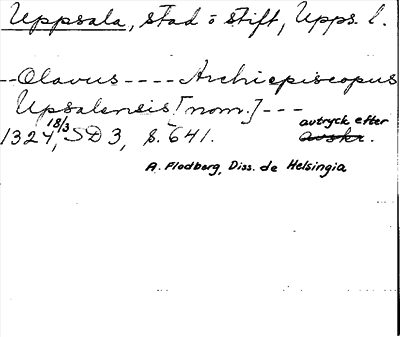 Uppsala, stad o stift, Upps. l.
--Olavus---- Archiepiscopus
Upsalensis [nom.] ---
1324 18/3, SD 3, s. 641. avtryck efter avskr.
A. Flodberg, Diss. de Helsingia